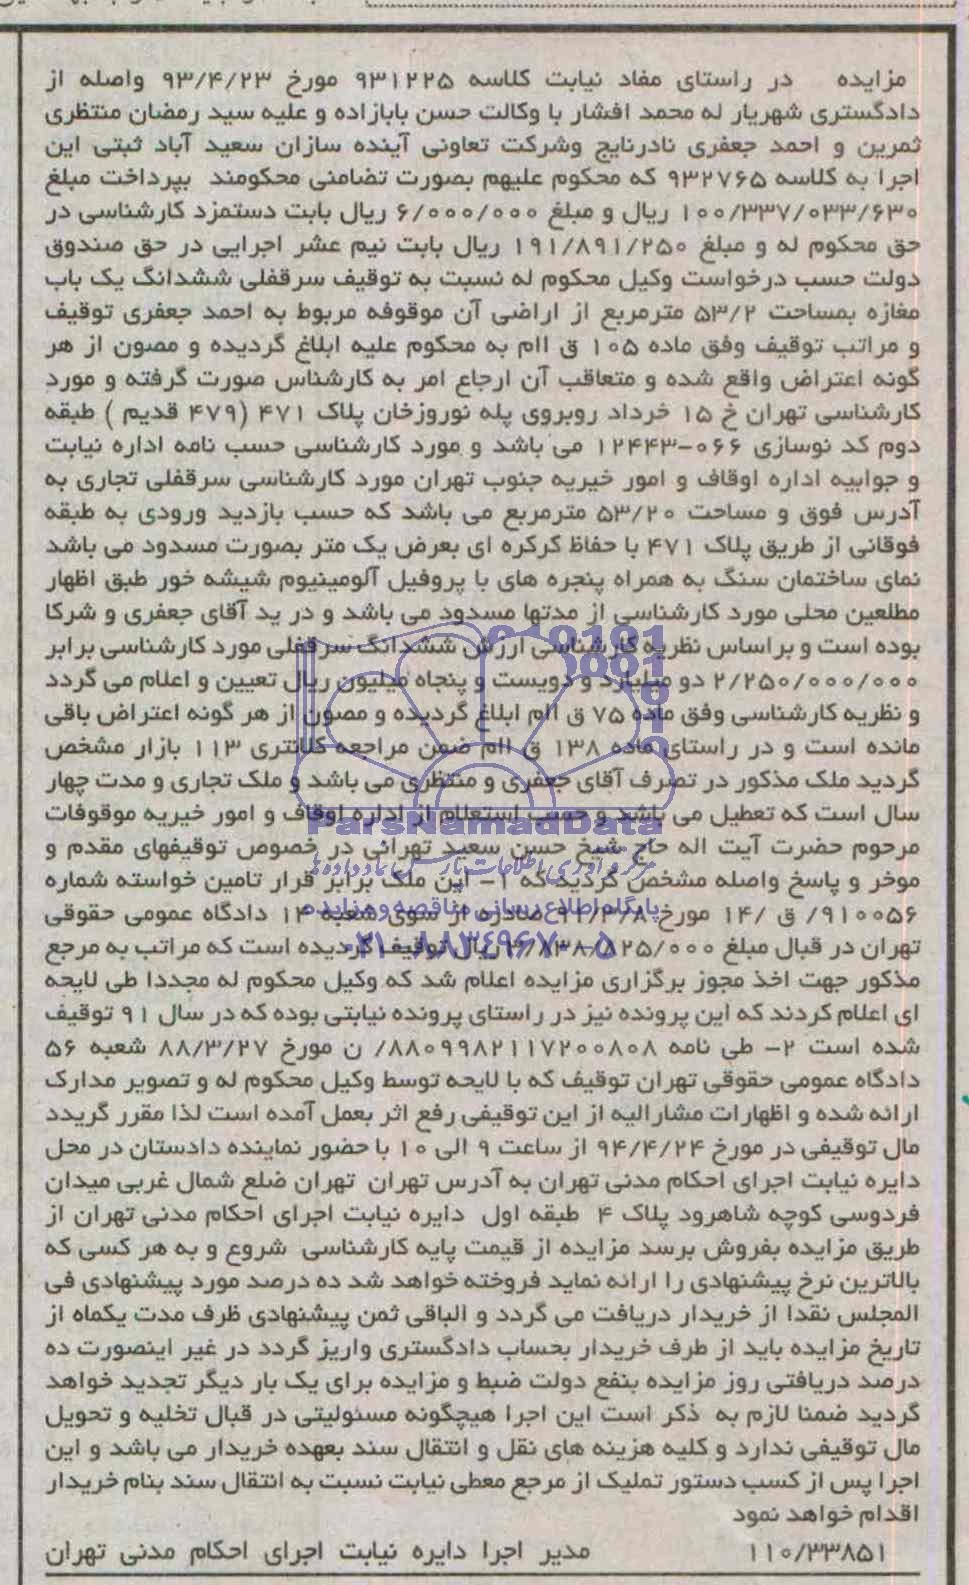 مزایده در راستای مفاد نیابت کلاسه ۹۳۱۲۲۵ مورخ ۹۳/۴/۲۳ واصله از
دادگستری شهریار له محمد افشار با وکالت حسن بابازاده و علیه سید رمضان منتظری
ثمرین و احمد جعفری نادرنایج وشرکت تعاونی آینده سازان سعید آباد ثبتی این
اجرا به کلاسه ۹۳۲۷۶۵ که محکوم علیهم بصورت تضامنی محکومند بپرداخت مبلغ
۱۰۰/۳۳۷/۰۳۳/۶۳۰ ریال و مبلغ ۶/۰۰۰/۰۰۰ ریال بابت دستمزد کارشناسی در
حق محکوم له و مبلغ ۱۹۱/۸۹۱/۲۵۰ ریال بابت نیم عشر اجرایی در حق صندوق
دولت حسب درخواست وکیل محکوم له نسبت به توقیف سرقفلی ششدانگ یک باب
مغازه بمساحت ۵۳/۲ مترمربع از اراضی آن موقوفه مربوط به احمد جعفری توقیف
و مراتب توقیف وفق ماده ۱۰۵ ق اام به محکوم علیه ابلاغ گردیده و مصون از هر
گونه اعتراض واقع شده و متعاقب آن ارجاع امر به کارشناس صورت گرفته و مورد
کارشناسی تهران خ ۱۵ خرداد روبروی پله نوروزخان پلاک ۴۷۱ (۴۷۹ قدیم ) طبقه
دوم کد نوسازی ۰۶۶-۱۲۴۴۳ می باشد و مورد کارشناسی حسب نامه اداره نیابت
و جوابیه اداره اوقاف و امور خیریه جنوب تهران مورد کارشناسی سرقفلی تجاری به
آدرس فوق و مساحت ۵۳/۲۰ مترمربع می باشد که حسب بازدید ورودی به طبقه
فوقانی از طریق پلاک ۴۷۱ با حفاظ کرکره ای بعرض یک متر بصورت مسدود می باشد
نمای ساختمان سنگ به همراه پنجره های با پروفیل آلومینیوم شیشه خور طبق اظهار
مطلعین محلی مورد کارشناسی از مدتها مسدود می باشد و در ید آقای جعفری و شرکا
بوده است و براساس نظریه کارشناسی ارزش ششدانگ سرقفلی مورد کارشناسی برابر
۲/۲۵۰/۰۰۰/۰۰۰ دو میلیارد و دویست و پنجاه میلیون ریال تعیین و اعلام می گردد
و نظریه کارشناسی وفق ماده ۷۵ ق اام ابلاغ گردیده و مصون از هر گونه اعتراض باقی
مانده است و در راستای ماده ۱۳۸ ق اام ضمن مراجعه کلانتری ۱۱۳ بازار مشخص
گردید ملک مذکور در تصرف آقای جعفری و منتظری می باشد و ملک تجاری و مدت چهار
سال است که تعطیل می باشد و حسب استعلام از اداره اوقاف و امور خیریه موقوفات
ParsNamadData
مرحوم حضرت آیت اله حاج شیخ حسن سعید تهرانی در خصوص توقیفهای مقدم و
مرکز فرآوری اطلاعات پارس نماد داده ها
موخر و پاسخ واصله مشخص گردید که ۱- این ملک برابر قرار تامین خواسته شماره
پایگاه اطلاع رسانی مناقصه و مزایده
۹۱۰۰۵۶/ ق /۱۴ مورخ ۹۱/۳/۸ صادره از سوی شعبه ۱۴ دادگاه عمومی حقوقی
۰۲۱-۸۸۳۴۹۶۷۰-۵
تهران در قبال مبلغ ۸۲۵/۰۰۰/ ریال توقیف گردیده است که مراتب به مرجع
مذکور جهت اخذ مجوز برگزاری مزایده اعلام شد که وکیل محکوم له مجددا طی لایحه
ای اعلام کردند که این پرونده نیز در راستای پرونده نیابتی بوده که در سال ۹۱ توقیف
شده است ۲- طی نامه ۸۸۰۹۹۸۲۱۱۷۲۰۰۸۰۸/ ن مورخ ۸۸/۳/۲۷ شعبه ۵۶
دادگاه عمومی حقوقی تهران توقیف که با لایحه توسط وکیل محکوم له و تصویر مدارک
ارائه شده و اظهارات مشارالیه از این توقیفی رفع اثر بعمل آمده است لذا مقرر گریدد
مال توقیفی در مورخ ۹۴/۴/۲۴ از ساعت ۹ الی ۱۰ با حضور نماینده دادستان در محل
دایره نیابت اجرای احکام مدنی تهران به آدرس تهران تهران ضلع شمال غربی میدان
فردوسی کوچه شاهرود پلاک ۴ طبقه اول دایره نیابت اجرای احکام مدنی تهران از
طریق مزایده بفروش برسد مزایده از قیمت پایه کارشناسی شروع و به هر کسی که
بالاترین نرخ پیشنهادی را ارائه نماید فروخته خواهد شد ده درصد مورد پیشنهادی فی
المجلس نقدا از خریدار دریافت می گردد و الباقی ثمن پیشنهادی ظرف مدت یکماه از
تاریخ مزایده باید از طرف خریدار بحساب دادگستری واریز گردد در غیر اینصورت ده
درصد دریافتی روز مزایده بنفع دولت ضبط و مزایده برای یک بار دیگر تجدید خواهد
گردید ضمنا لازم به ذکر است این اجرا هیچگونه مسئولیتی در قبال تخلیه و تحویل
مال توقیفی ندارد و کلیه هزینه های نقل و انتقال سند بعهده خریدار می باشد و این
اجرا پس از کسب دستور تملیک از مرجع معطی نیابت نسبت به انتقال سند بنام خریدار
اقدام خواهد نمود
۱۱۰/۳۳۸۵۱ مدیر اجرا دایره نیابت اجرای احکام مدنی تهران